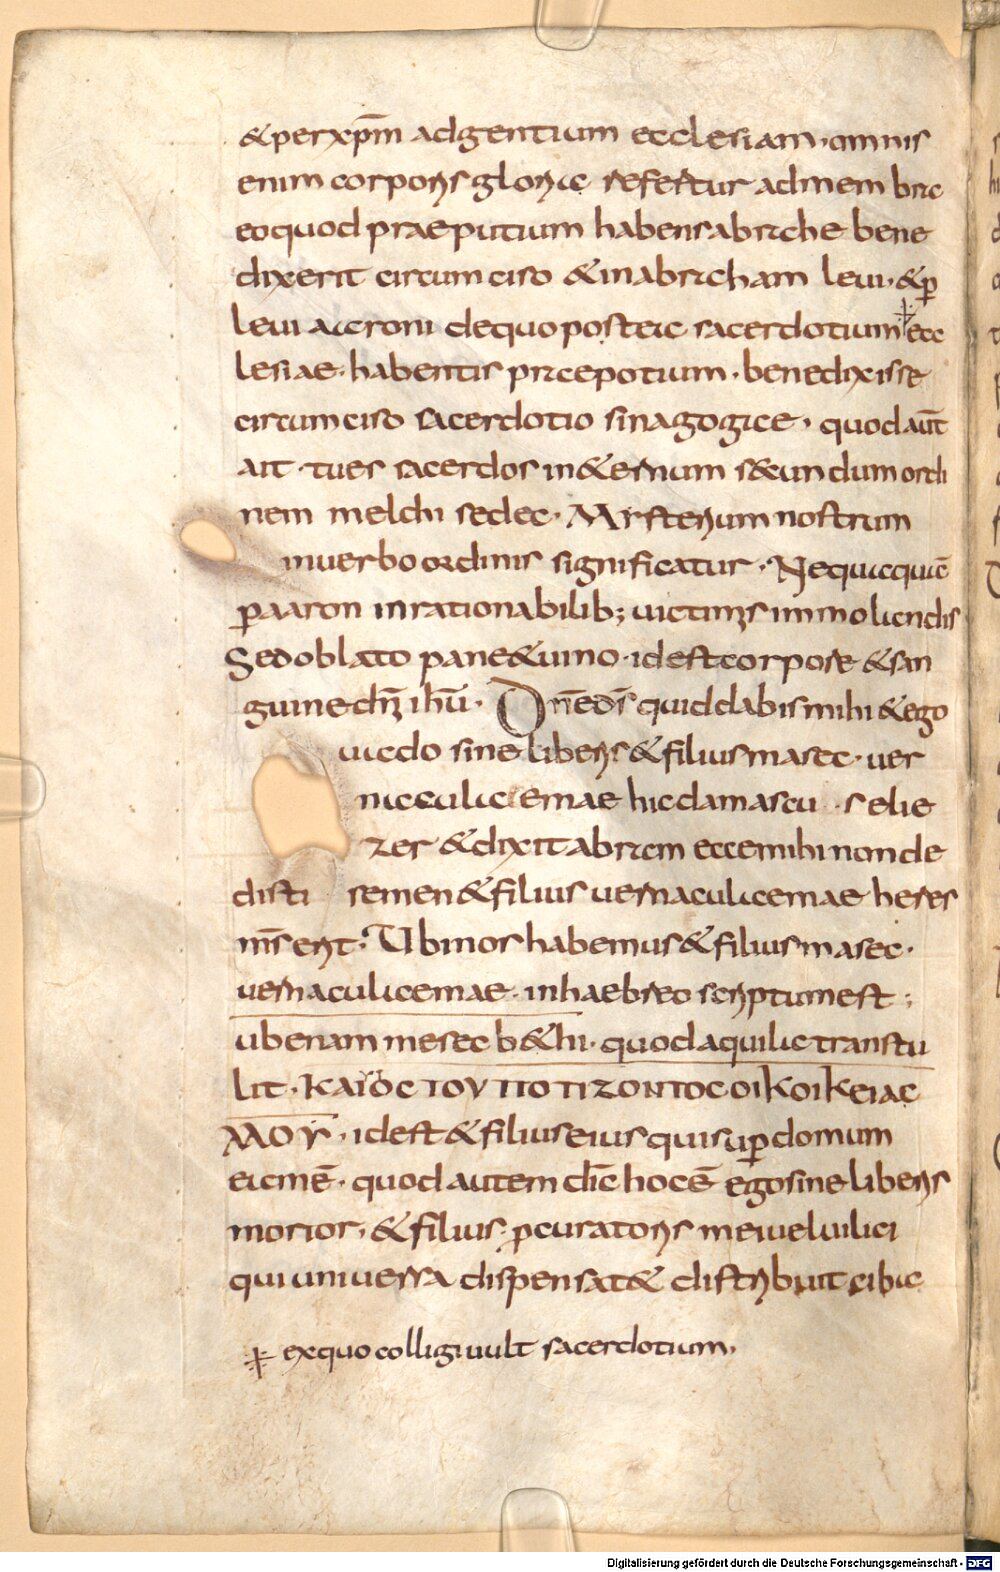 & per xp̄m ad gentium ecclesiam · omnis
enim corporis gloria refertur ad membra
eo quod praeputium habens abrahae bene
dixerit circumciso & in abraham leui · & ꝑ
leui aaroni de quo postea sacerdotium ecc
lesiae · habentis praepotium · benedixisse
circumciso sacerdotio sinagogae · quod aut̄
ait · tu es sacerdos in &ernum s&undum ordi
nem melchisedec · Misterium nostrum
in uerbo ordinis significatur · Nequaquā
ꝑ aaron inrationabilib; uictimis immolandis
Sed oblato pane & uino · id est corpore & san
guine dn̄i ihū · Dn̄e ds̄ quid dabis mihi & ego
uado sine liberis & filius masec · uer
naculae meae hic damascus elie
zer & dixit abram ecce mihi non de
disti semen & filius uernaculae meae heres
ms̄ erit · Ubi nos habemus & filius masec ·
uernaculae meae · in haebreo scriptum est ;
uben am mesec b&hi · quod aquila transtu
lit · ΚΑΙ ΥΟC ΤΟΥ ΠΟΤΙΖΟΝΤΟC ΟΙΚΟΙΚΕΙΑC
ΜΟΥ · id est & filius eius qui suꝑ domum
eamē · quod autem dic̄ hoc ē ego sine liberis
morior · & filius ꝓcuratoris mei uel uilici
qui uniuersa dispensat & distribuit ciba
exquo colligi uult sacerdotium ·
Digitalisierung gefördert durch die Deutsche Forschungsgemeinschaft - DFG